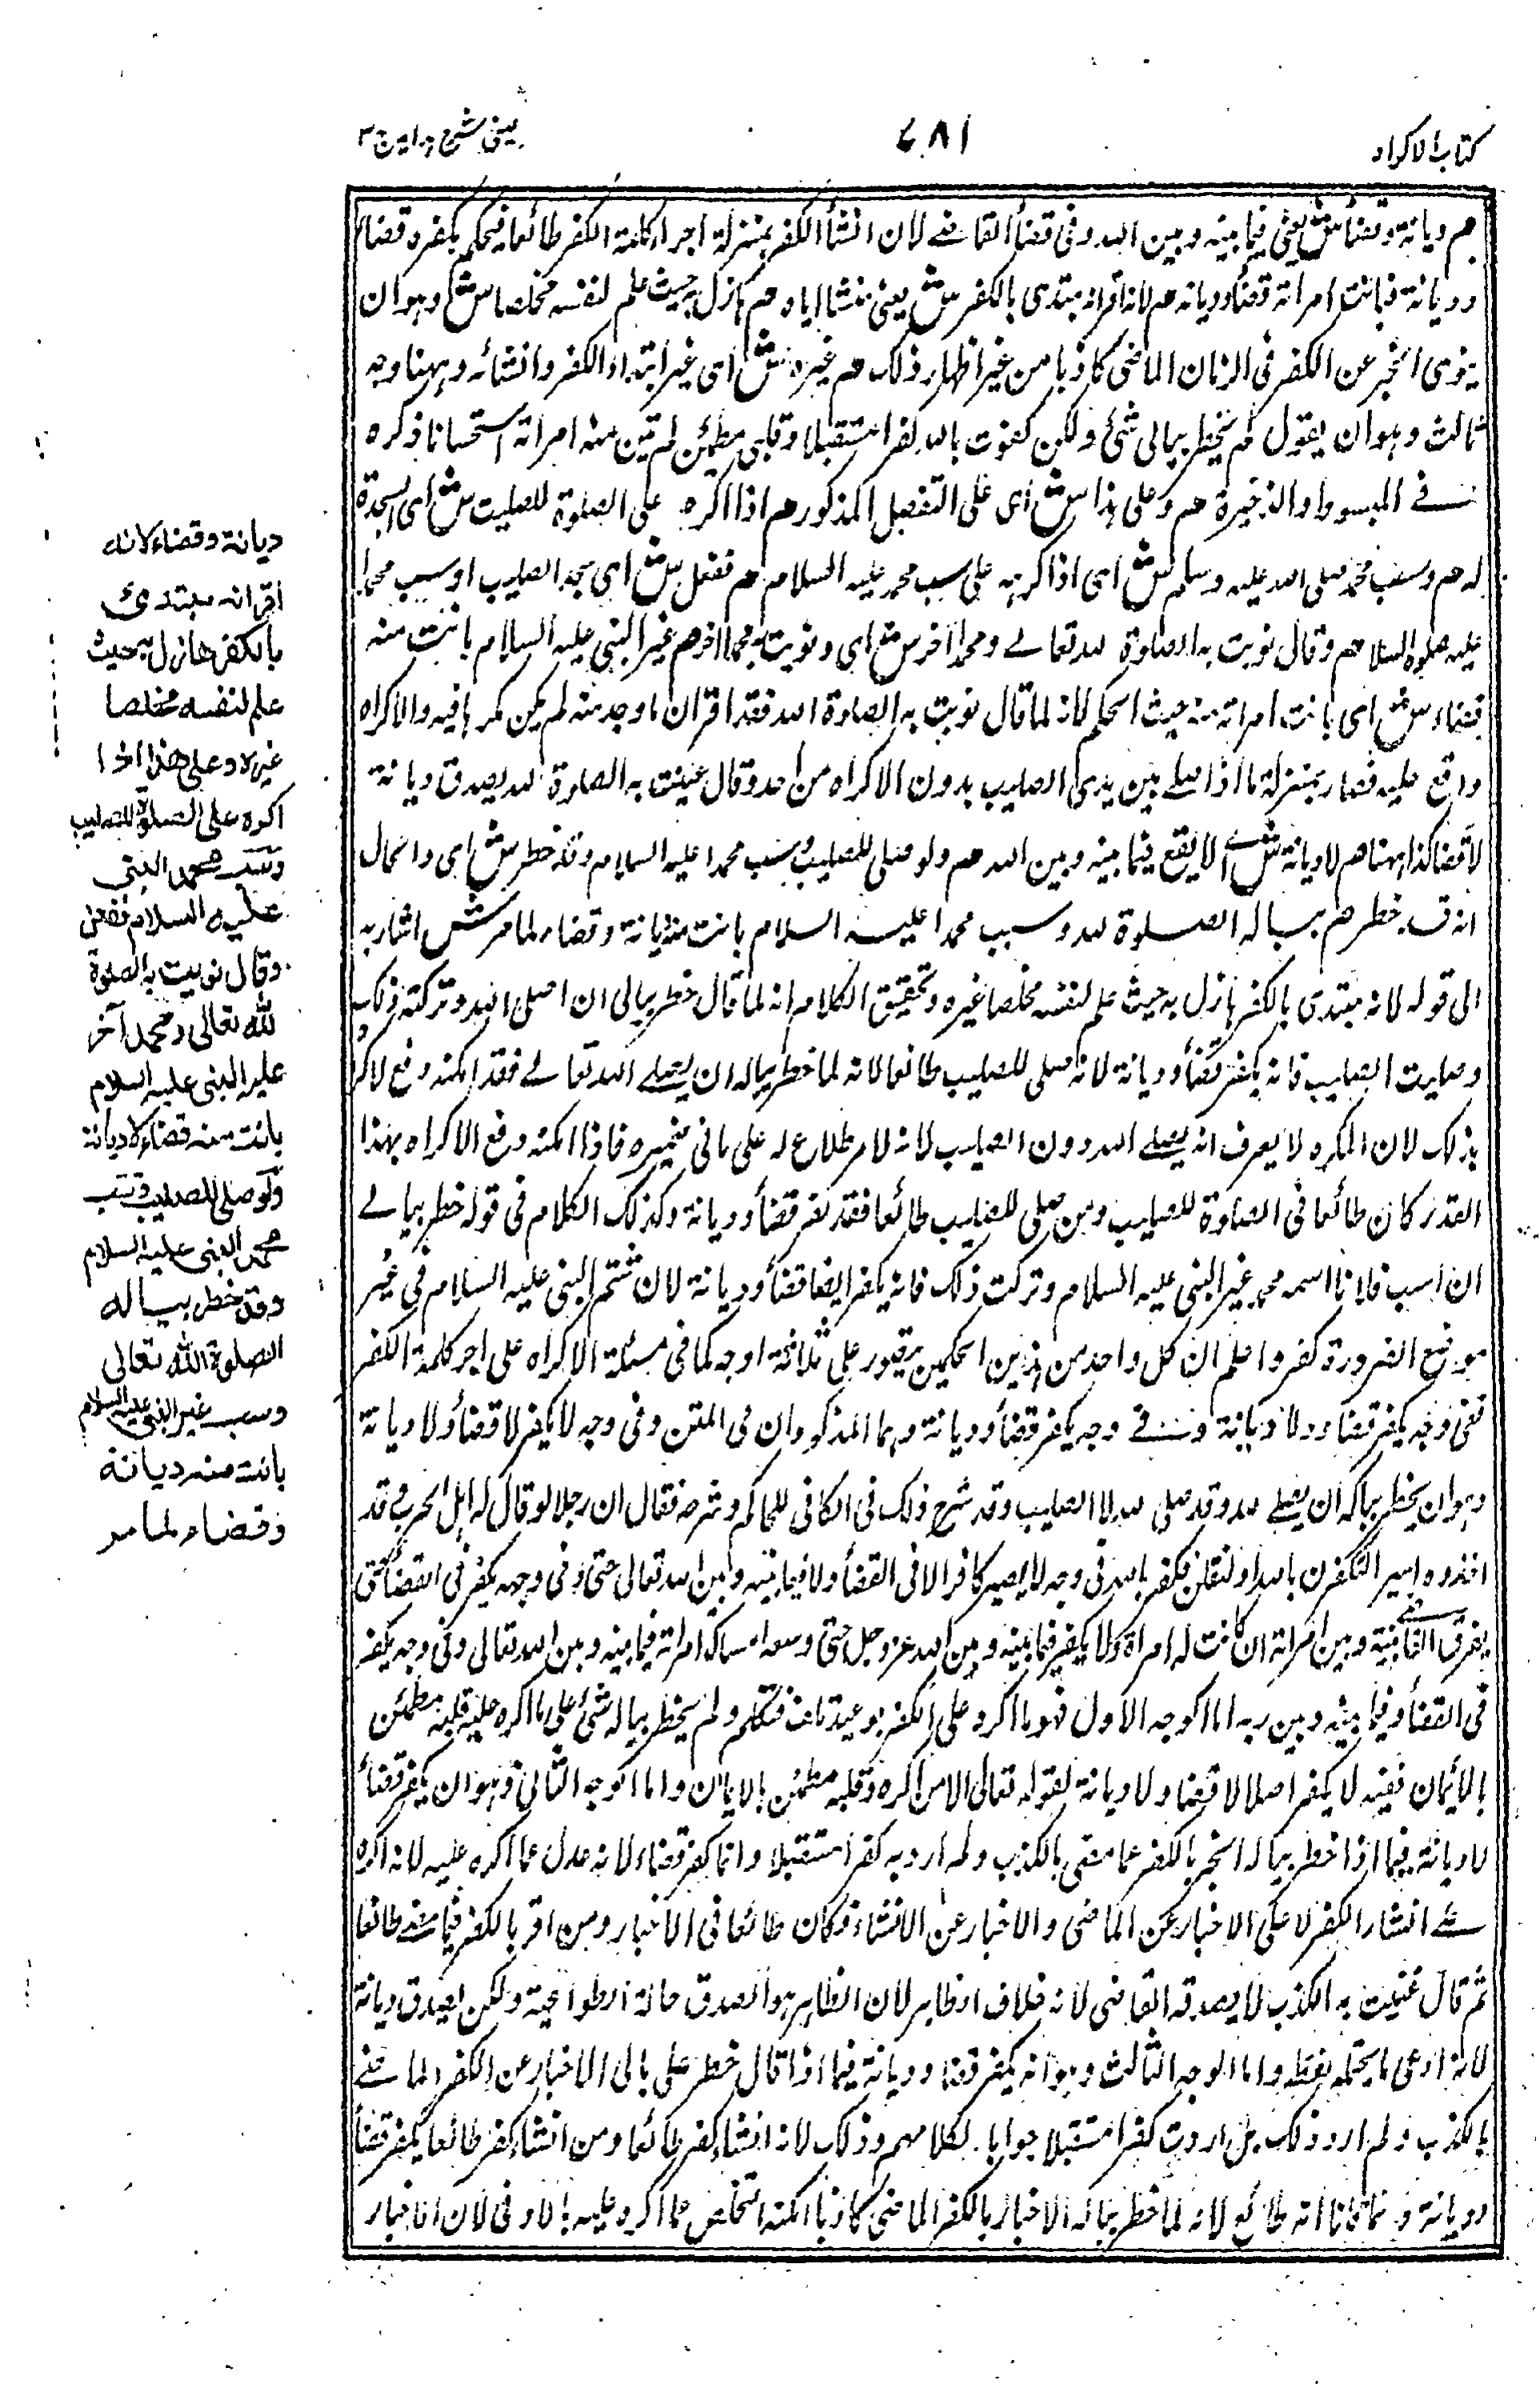 كتاب الاكراه
٦٨١
عینی شرح ہدایہ ج ٣
م ديانة وقضاء ش يعني فيما بينه وبين الله وفي قضاء القاضي لان انشاء الكفر بمنزلة اجراء كلمة الكفر طائعا فيحكم بكفره قضاء
وديانة فبانت امرأته قضاء وديانة م لانه اقر انه مبتدئ بالكفر ش يعني منشا اياه م هازل به حيث علم لنفسه مخلصا ش وهو ان
ينوي الخبر عن الكفر في الزمان الماضي كاذبا من غير اظهار ذلك م غيره ش اي غير ابتداء الكفر وانشائه وههنا وجه
ثالث وهو ان يقول لم يخطر ببالي شيء ولكن كفرت بالله كفرا مستقبلا وقلبي مطمئن لم تبن منه امرأته استحسانا ذكره
في المبسوط والذخيرة م وعلى هذا ش اي على التفصيل المذكور م اذا اكره على الصلوة للصليب ش اي السجدة
له م وسب محمد صلى الله عليه وسلم ش اي اذا اكره على سب محمد عليه السلام م ففعل ش اي سجد الصليب او سب محمدا
عليه الصلوة والسلام م وقال نويت به الصلوة لله تعالى ومحمدا آخر ش اي ونويت به محمدا آخر م غير النبي عليه السلام بانت منه
قضاء ش اي بانت امرأته منه حيث الحكم لانه لما قال نويت به الصلوة لله فقد اقر ان ما وجد منه لم يكن مكرها فيه والاكراه
واقع عليه فصار بمنزلة ما اذا صلى بين يدي الصليب بدون الاكراه من احد وقال عنيت به الصلوة لله يصدق ديانة
لا قضاء كذا ههنا م لا ديانة ش اي لا يقع فيما بينه وبين الله م ولو صلى للصليب وسب محمدا عليه السلام وقد خطر ش اي والحال
انه قد خطر م بباله الصلوة لله وسب محمدا عليه السلام بانت منه ديانة وقضاء لما مر ش اشار به
الى قوله لانه مبتدئ بالكفر هازل به حيث علم لنفسه مخلصا غيره وتحقيق الكلام انه لما قال خطر ببالي ان اصلي لله وتركت ذلك
وصليت الصليب فانه يكفر قضاء وديانة لانه صلى للصليب طائعا لانه لما خطر بباله ان يصلي لله تعالى فقد امكنه دفع الاكراه
بذلك لان المكره لا يعرف انه يصلي لله دون الصليب لانه لا اطلاع له على ما في ضميره فاذا امكنه دفع الاكراه بهذا
القدر كان طائعا في الصلوة للصليب ومن صلى للصليب طائعا فقد كفر قضاء وديانة وكذلك الكلام في قوله خطر ببالي
ان اسب فلانا اسمه محمد غير النبي عليه السلام وتركت ذلك فانه يكفر ايضا قضاء وديانة لان شتم النبي عليه السلام في غير
موضع الضرورة كفر واعلم ان كل واحد من هذين الحكمين يتصور على ثلاثة اوجه كما في مسئلة الاكراه على اجراء كلمة الكفر
ففي وجه يكفر قضاء ولا ديانة وفي وجه يكفر قضاء وديانة وهما المذكوران في المتن وفي وجه لا يكفر لا قضاء ولا ديانة
وهو ان يخطر بباله ان يصلي لله وقد صلى لله لا الصليب وقد شرح ذلك في الكافي للحاكم وشرحه فقال ان رجلا لو قال له اهل الحرب وقد
اخذوه اسيرا لتكفرن بالله او لنقتلنك فكفر بالله في وجه لا يصير كافرا لا في القضاء ولا فيما بينه وبين الله تعالى حتى وفي وجه يكفر في القضاء حتى
يفرق القاضي بينه وبين امرأته ان كانت له امرأة ولا يكفر فيما بينه وبين الله عز وجل حتى وسعه امساك امرأته فيما بينه وبين الله تعالى وفي وجه يكفر
في القضاء وفيما بينه وبين ربه اما الوجه الاول فهو ما اكره على الكفر بوعيد تلف فتكلم ولم يخطر بباله شيء على ما اكره عليه قلبه مطمئن
بالايمان ففيه لا يكفر اصلا لا قضاء ولا ديانة لقوله تعالى الا من اكره وقلبه مطمئن بالايمان واما الوجه الثاني وهو ان يكفر قضاء
لا ديانة فيما اذا خطر بباله الخبر بالكفر عما مضى بالكذب ولم ارد به كفرا مستقبلا وانما كفر قضاء لانه عدل عما اكره عليه لانه اكره
على انشاء الكفر لا على الاخبار عن الماضي والاخبار عن الانشاء فكان طائعا في الاخبار ومن اقر بالكفر فيما مضى طائعا
ثم قال عنيت به الكذب لا يصدقه القاضي لانه خلاف الظاهر لان الظاهر هو الصدق حالة الطواعية ولكن يصدق ديانة
لانه ادعى ما يحتمله لفظه واما الوجه الثالث وهو انه يكفر قضاء وديانة فيما اذا قال خطر على بالي الاخبار عن الكفر الماضي
بالكذب ولم ارد ذلك بل اردت كفرا مستقبلا جوابا لكلامهم وذلك لانه انشاء كفر طائعا ومن انشاء كفر طائعا يكفر قضاء
وديانة وانما قلنا انه طائع لانه لما خطر بباله الاخبار بالكفر الماضي كاذبا امكنه التخلص عما اكره عليه بالادنى لان الاخبار
ديانة وقضاء لانه
اقر انه مبتدئ
بالكفر هازل به حيث
علم لنفسه مخلصا
غيره وعلى هذا اذا
اكره على الصلوة للصليب
وسب محمد النبي
عليه السلام ففعل
وقال نويت به الصلوة
لله تعالى ومحمدا آخر
غير النبي عليه السلام
بانت منه قضاء لا ديانة
ولو صلى للصليب وسب
محمد النبي عليه السلام
وقد خطر بباله
الصلوة لله تعالى
وسب غير النبي عليه السلام
بانت منه ديانة
وقضاء لما مر